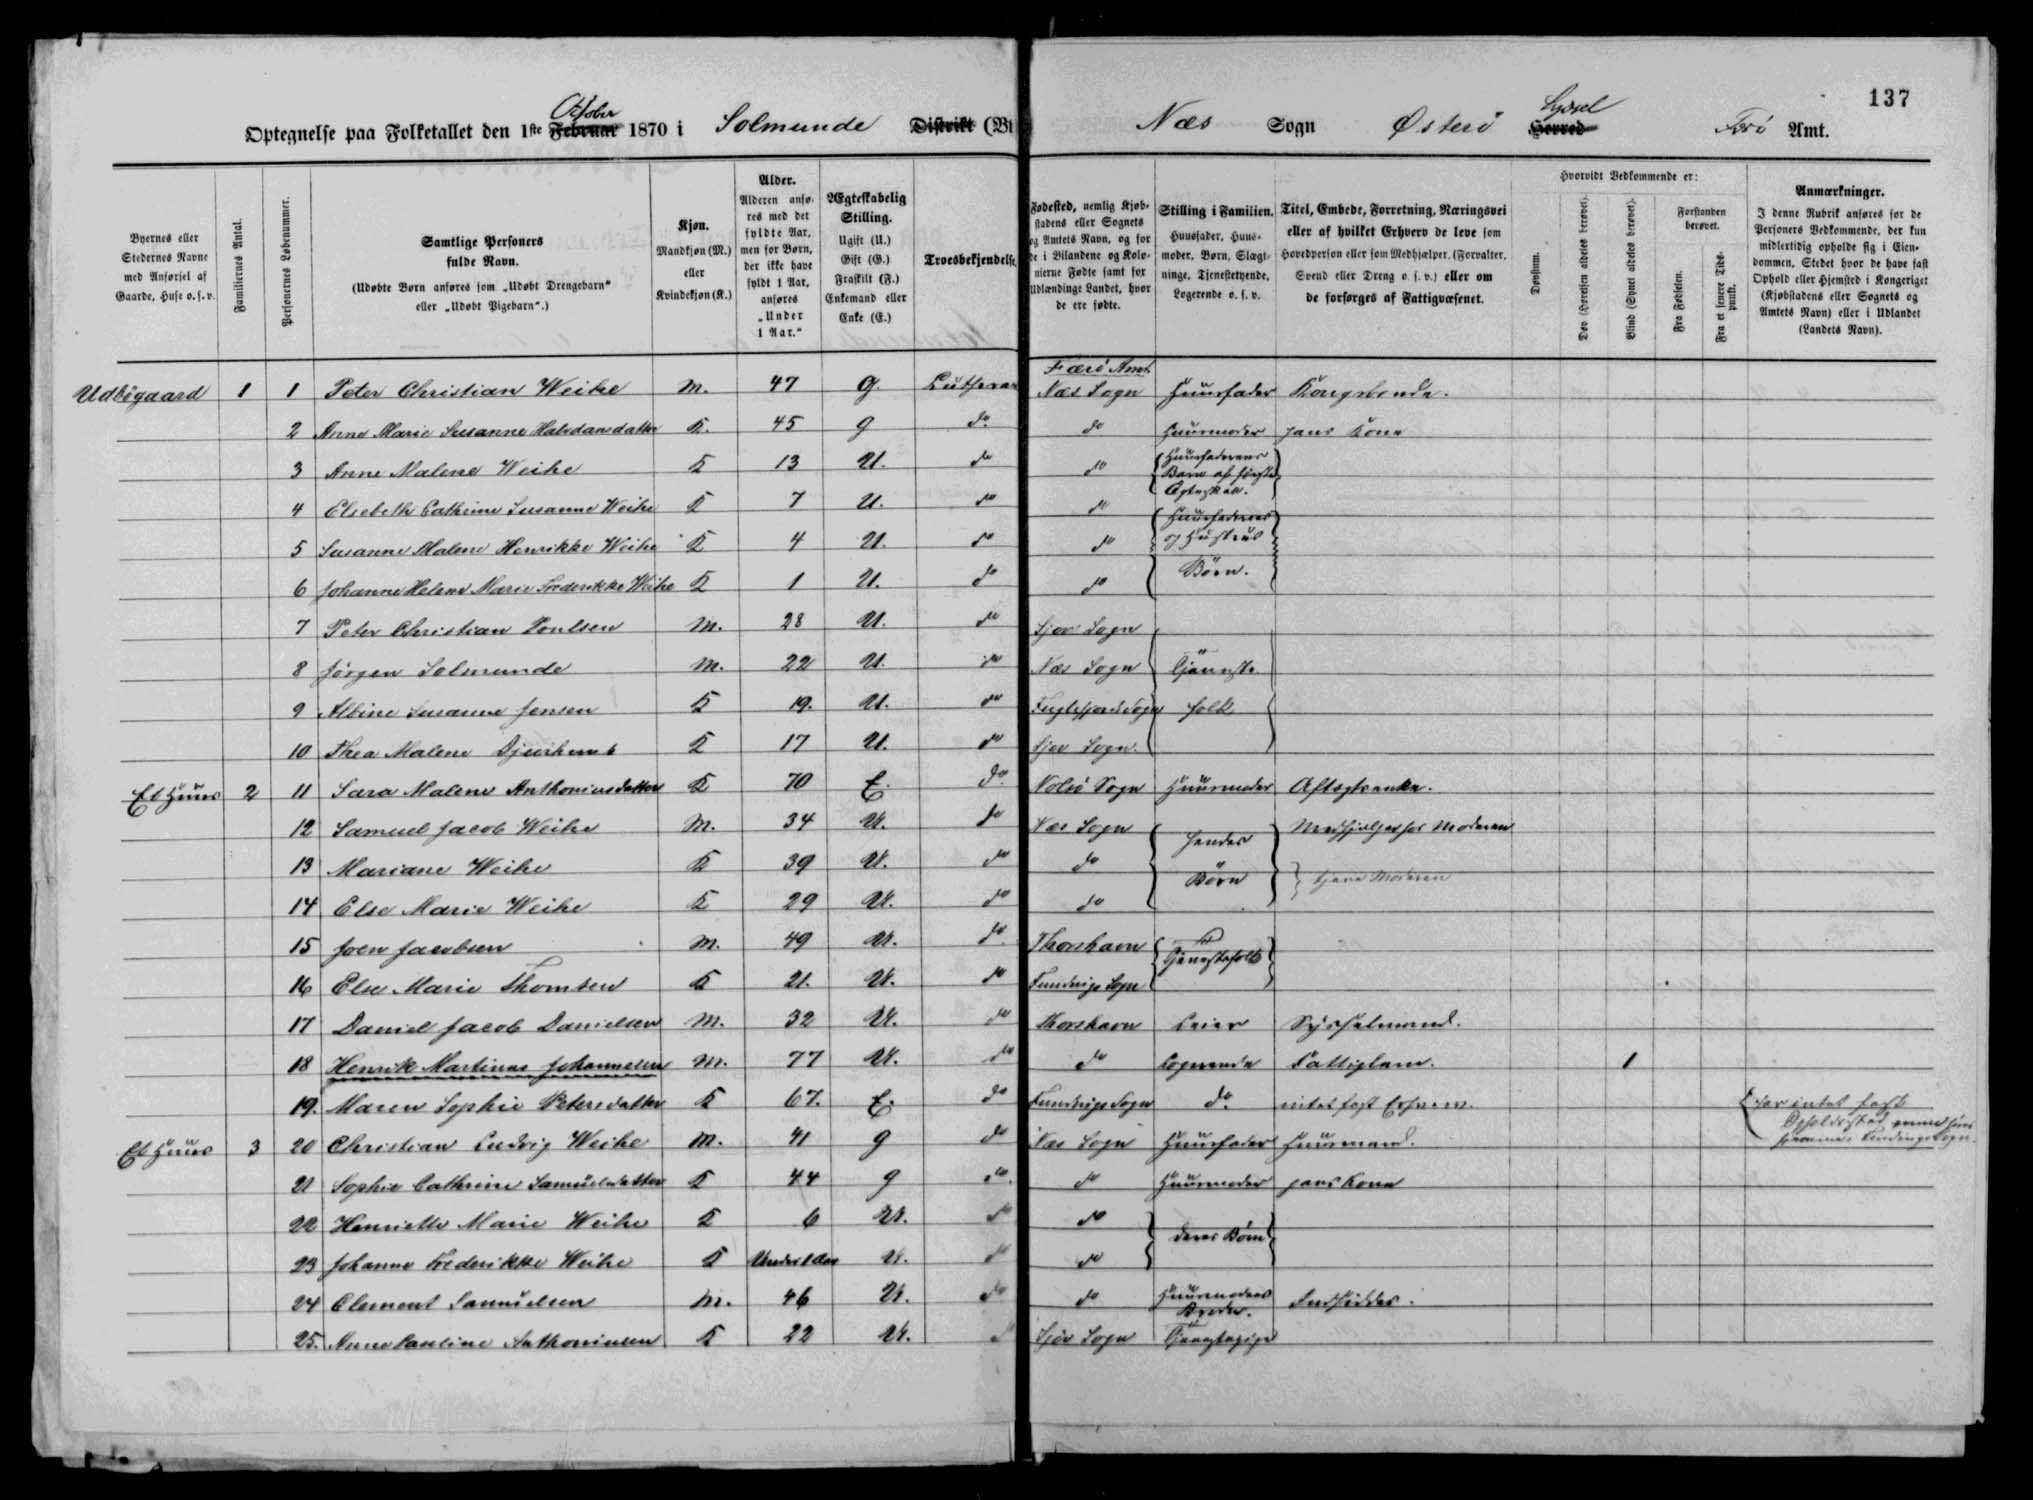 137
October
Optegnelse paa Folketallet den 1ste Februar 1870 i Solmunde Distrikt (By
Næs Sogn Østerö Herred Syssel Færö Amt.
Byernes eller Stedernes Navne med Anførsel af Gaarde, Huse o. s. v.
Familiernes Antal.
Personernes Løbenummer.
Samtlige Personers fulde Navn.
(Udøbte Børn anføres som „Udøbt Drengebarn“ eller „Udøbt Pigebarn“.)
Kjøn. Mandkjøn (M.) eller Kvindekjøn (K.)
Alder. Alderen anføres med det fyldte Aar, men for Børn, der ikke have fyldt 1 Aar, anføres „Under 1 Aar.“
Ægteskabelig Stilling. Ugift (U.) Gift (G.) Fraskilt (F.) Enkemand eller Enke (E.)
Troesbekjendelse
Fødested, nemlig Kjøbstadens eller Sognets og Amtets Navn, og for de i Bilandene og Kolonierne Fødte samt for Udlændinge Landet, hvor de ere fødte.
Stilling i Familien. Huusfader, Huusmoder, Børn, Slægtninge, Tjenestetyende, Logerende o. s. v.
Titel, Embede, Forretning, Næringsvei eller af hvilket Erhverv de leve som Hovedperson eller som Medhjælper, (Forvalter, Svend eller Dreng o. s. v.) eller om de forsørges af Fattigvæsenet.
Hvorvidt Vedkommende er:
Døvstum.
Døv (Hørelsen aldeles berøvet).
Blind (Synet aldeles berøvet).
Forstanden berøvet.
Fra Fødselen.
Fra et senere Tidspunkt.
Anmærkninger.
I denne Rubrik anføres for de Personers Vedkommende, der kun midlertidig opholde sig i Eiendommen, Stedet hvor de have fast Ophold eller Hjemsted i Kongeriget (Kjøbstadens eller Sognets og Amtets Navn) eller i Udlandet (Landets Navn).
Færö Amt
Udbögaard 1 1 Peter Christian Weihe M. 47 g. Luthersk Næs Sogn Huusfader Kongsbonde.
2 Anne Marie Susanne Halvdansdatter K. 45 g do do Huusmoder hans Kone
3 Anne Malene Weihe K 13 U. do do Huusfaderens Barn af første Ægteskab.
4 Elsebeth Cathrine Susanne Weihe K 7 U. do do Huusfaderens
5 Susanne Malene Henrikke Weihe K 4 U. do do og Hustrus
6 Johanne Helene Marie Frederikke Weihe K 1 U. do do Börn.
7 Peter Christian Poulsen M. 28 U. do Sjov Sogn
8 Jörgen Solmunde M. 22 U. do Næs Sogn Tjeneste
9 Albine Susanne Jensen K 19. U. do Fuglefjords Sogn folk
10 Thea Malene Djurhuus K 17 U. do Sjov Sogn.
Et Huus 2 11 Sara Malene Anthoniusdatter K 70 E. do Nolsö Sogn Huusmoder Aftægtsenke.
12 Samuel Jacob Weihe M. 34 U. do Næs Sogn hendes Medhjælper for Moderen
13 Mariane Weihe K 39 U. do do Börn tjene Moderen
14 Else Marie Weihe K 29 U. do do
15 Joen Jacobsen M. 49 U. do Thorshavn Tjenestefolk
16 Else Marie Thomsen K 21. U. do Funnings Sogn
17 Daniel Jacob Danielsen M. 32 U. do Thorshavn Leier Sysselmand.
18 Henrik Martinus Johannesen M. 77 U. do do Logerende Fattiglem. 1
19. Maren Sophie Petersdatter K 67. E. do Funnings Sogn do. intet fast Erhverv. har intet fast
Opholdssted
Et Huus 3 20 Christian Ludvig Weihe M. 41 g do Næs Sogn Huusfader Huusmand.
21 Sophie Cathrine Samuelsdatter K 44 g do. do Huusmoder hans Kone
22 Henriette Marie Weihe K 6 U. do do deres Børn
23 Johanne Frederikke Weihe K Under 1 Aar U. do do
24 Clement Samuelsen M. 46 U. do do Huusmoders Broder. Indsidder.
25. Anne Pauline Anthoniusen K 22 U. Sjov Sogn Tjenestepige